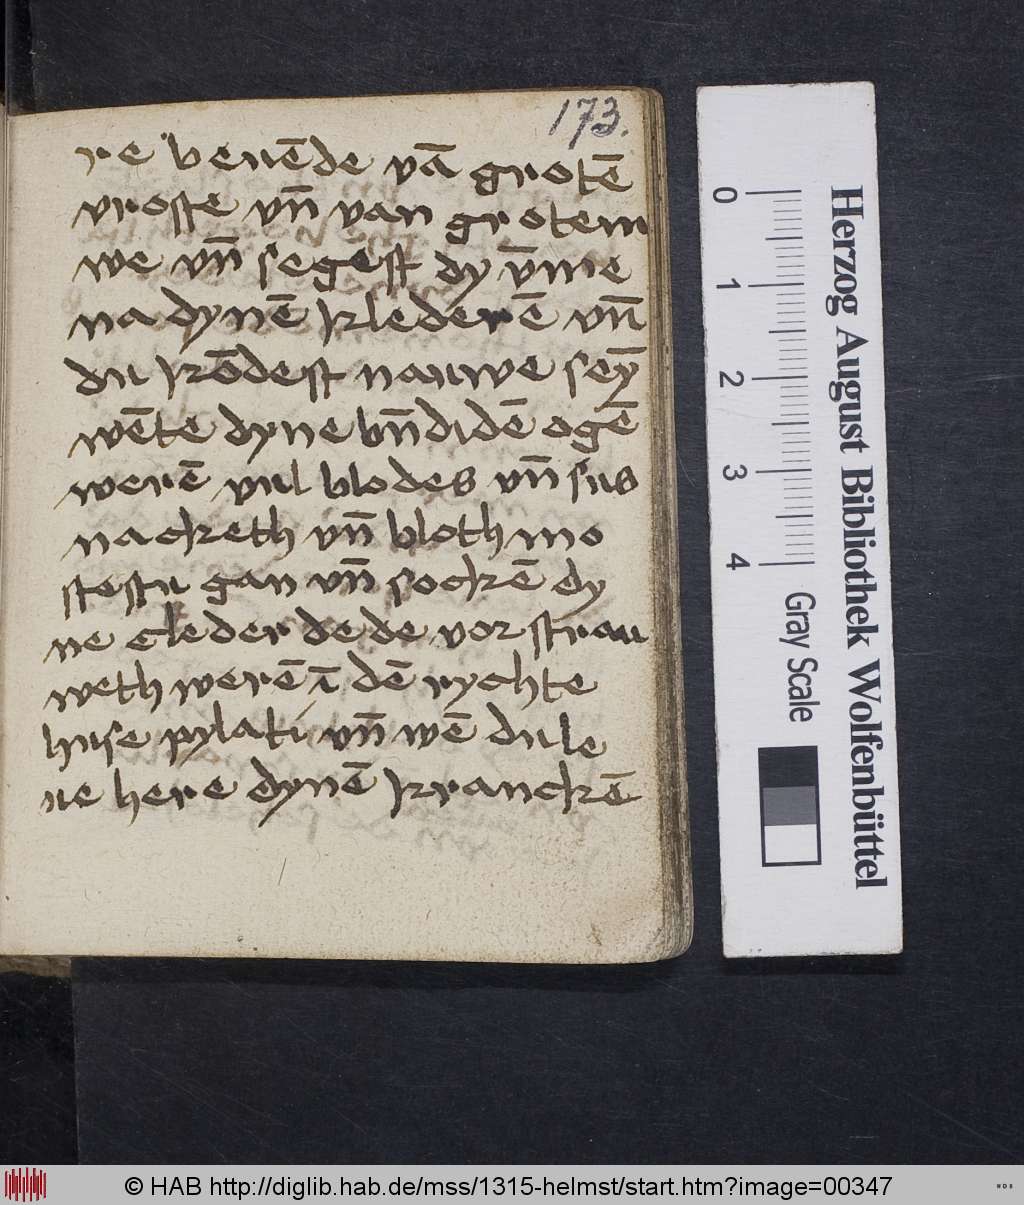 173.
re beuēde vā grotē
vroste vn̄ van grotem
we vn̄ segēst dy v̄me
na dynē klederē vn̄
du kōdest nauwe seȳ
wēte dyne bn̄didē ogē
werē vul blodes vn̄ sus
nacketh vn̄ bloth mo
stestu gan vn̄ sockē dy
ne cleder de de vor strau
weth werē ī dē rychte
huse pylati vn̄ wē du le
ue here dynē kranckē
0
1
2
3
4
Gray Scale
Herzog August Bibliothek Wolfenbüttel
© HAB http://diglib.hab.de/mss/1315-helmst/start.htm?image=00347